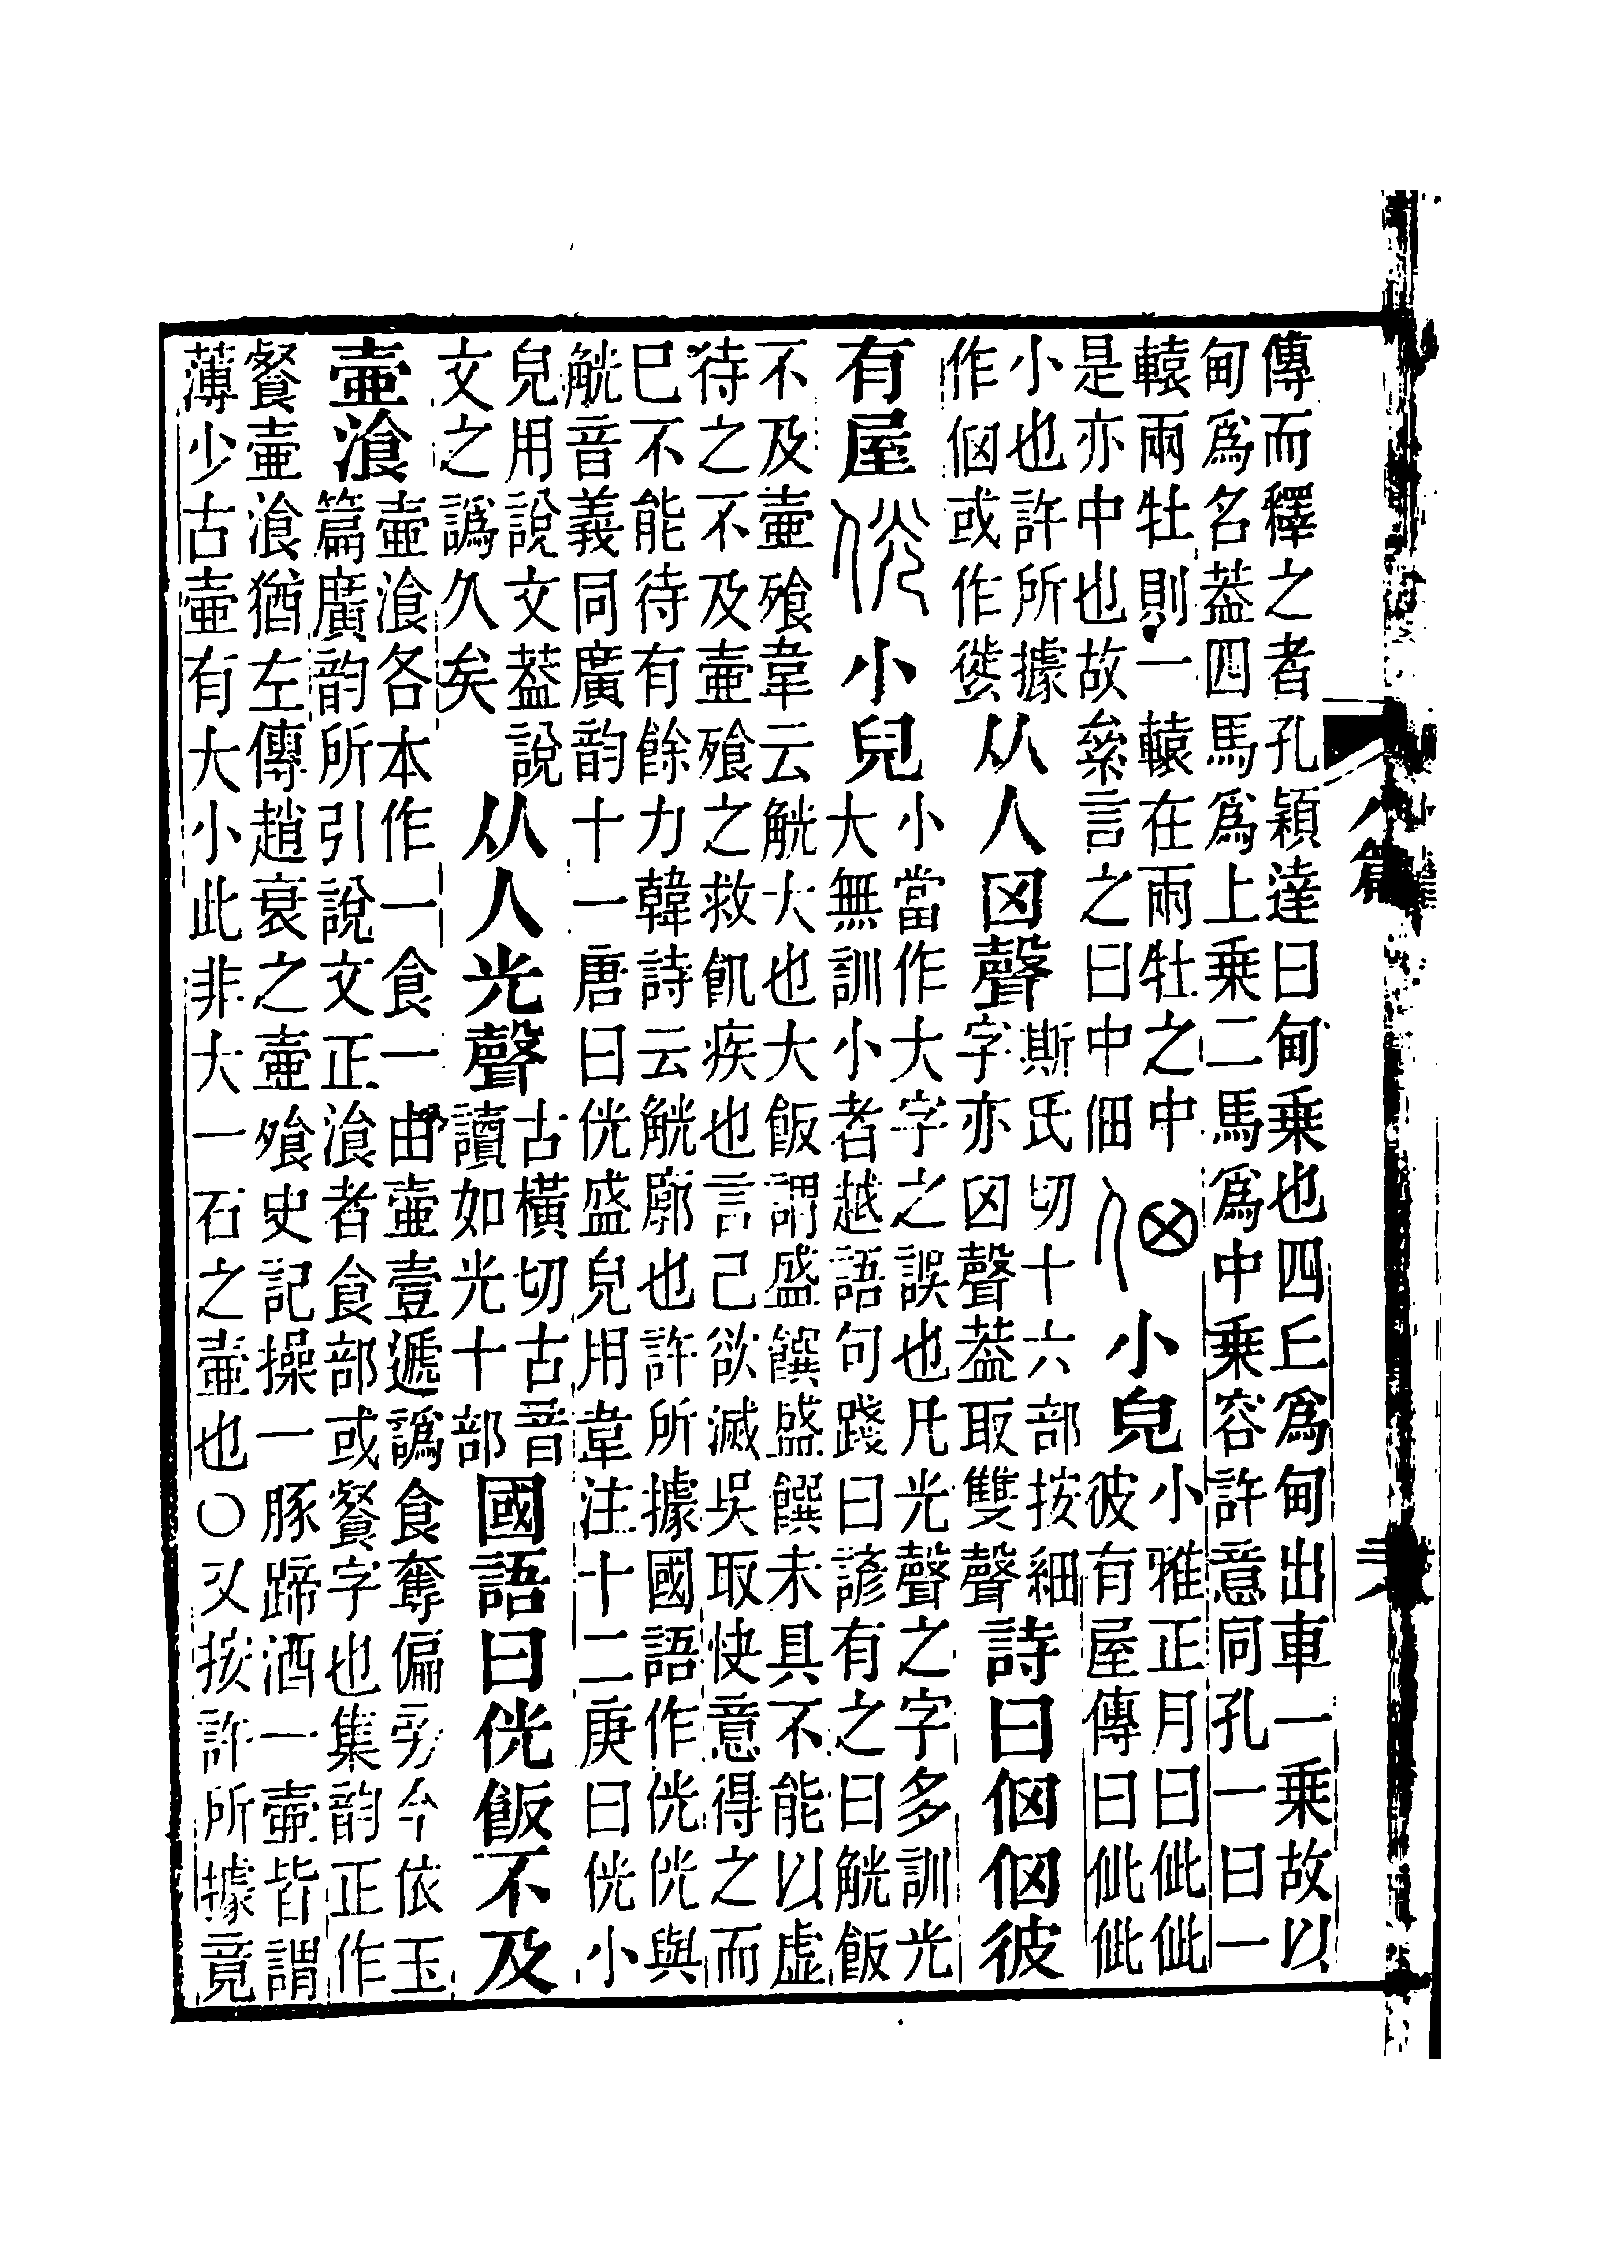 傳而釋之者孔穎達曰甸乗也四丘爲甸出車一乗故以
甸爲名葢四馬爲上乗二馬爲中乗容許意同孔一曰一
轅兩牡則一轅在兩牡之中
是亦中也故絫言之曰中佃
小皃
小雅正月曰佌佌
彼有屋傳曰佌佌
小也許所據
作㑋或作
从人囟聲
斯氏切十六部按細
字亦囟聲葢取雙聲
詩曰㑋㑋彼
有屋
侊
小皃
小當作大字之誤也凡光聲之字多訓光
大無訓小者越語句踐曰諺有之曰觥飯
不及壷飱韋云觥大也大飯謂盛饌盛饌未具不能以虛
待之不及壷飱之救飢疾也言己欲滅吳取快意得之而
巳不能待有餘力韓詩云觥廓也許所據國語作侊侊與
觥音義同廣韵十一唐曰侊盛皃用韋注十二庚曰侊小
皃用說文葢說
文之譌久矣
从人光聲
古橫切古音
讀如光十部
國語曰侊飯不及
壷湌
壷湌各本作一食一由壷壹遞譌食奪偏旁今依玉
篇廣韵所引說文正湌者食部或餐字也集韵正作
餐壷湌猶左傳趙衰之壷飱史記操一豚蹄酒一壷皆謂
薄少古壷有大小此非大一石之壷也〇又按許所據竟